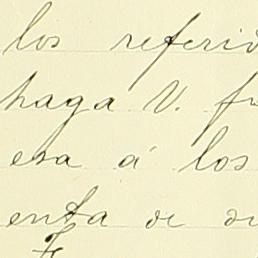 los referid
haga V. fr
esa á los
enta de di